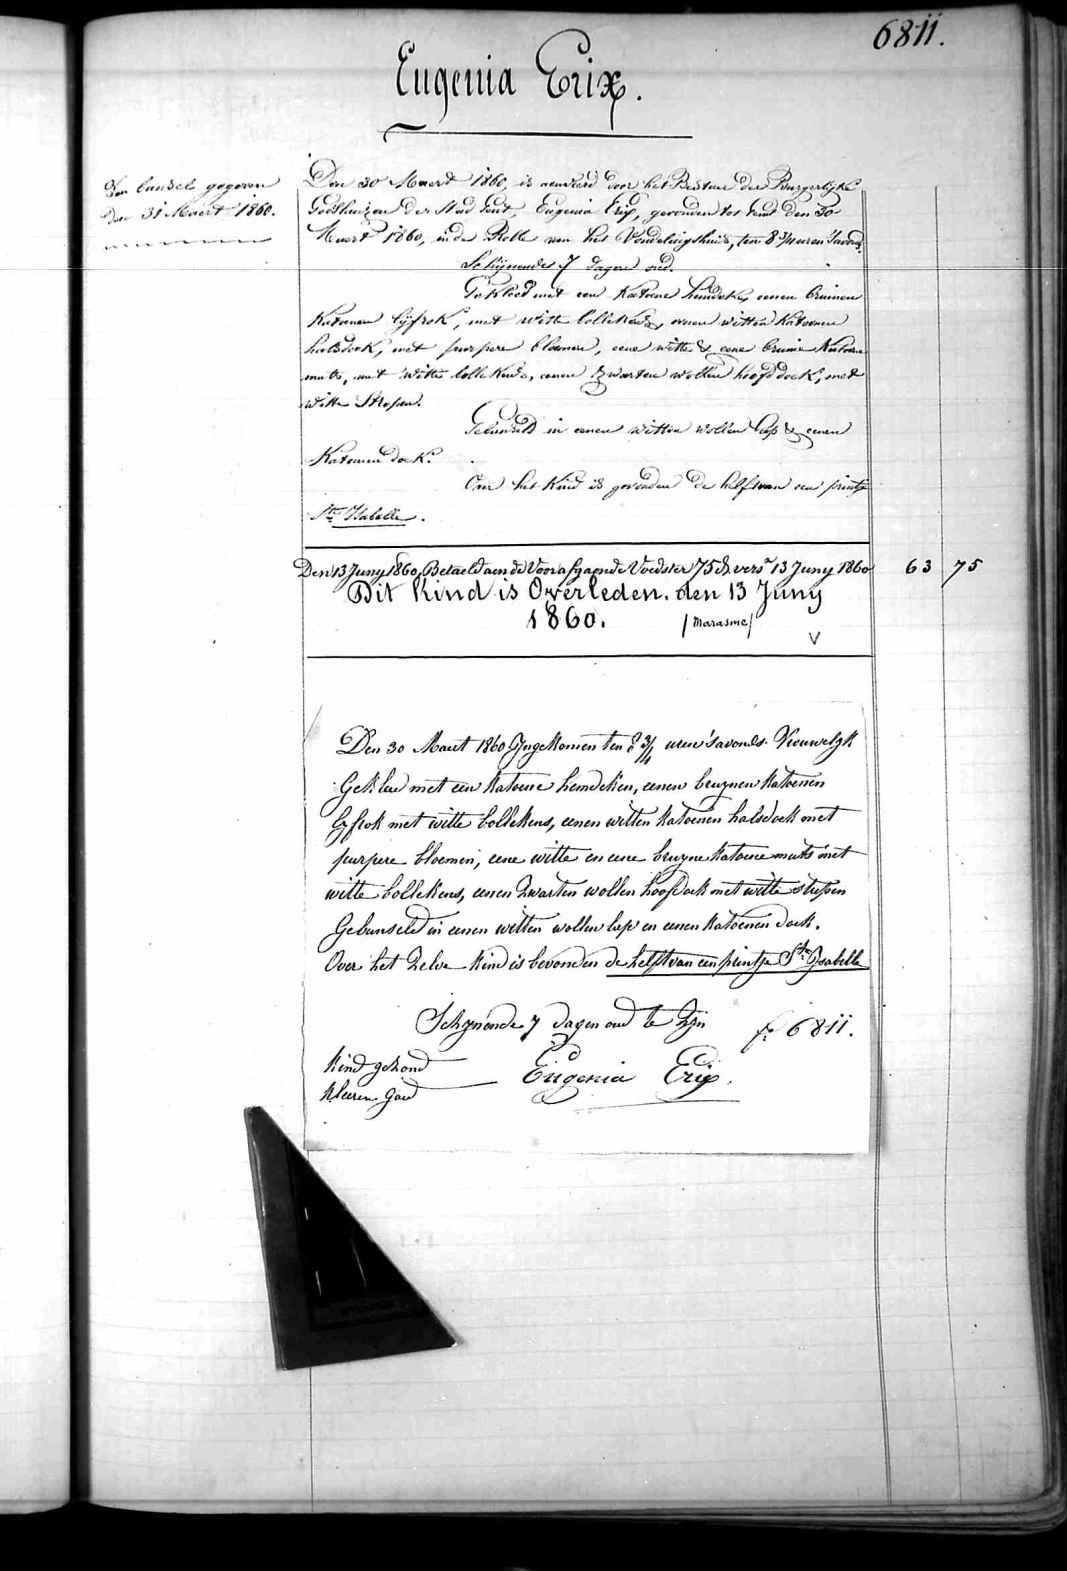 6811.
Eugenia Erix.
Een bunsel gegeven
den 31 Maert 1860.
Den 30 Maert 1860, is aenveerd door het Bestuer der Burgerlyke
Godshuizen der Stad Gent, Eugenia Erix, gevonden tot Gent den 30
Maert 1860, in de Rolle van het Vondelingshuis, ten 8 3/4 uren 'savonds.
Schijnende 7 dagen oud.
Gekleed met een Katoene hemdeke, eenen bruinen
Katoenen lijfrok, met witte bollekens, eenen witten Katoenen
halsdoek, met purpere bloemen, eene witte & eene bruine Katoene
muts, met witte bollekens, eenen zwarten wollen hoofddoek, met
witte Strepen.
Gebunseld in eenen witten wollen lap & eenen
Katoenen doek.
Over het Kind is gevonden de helft van een printje
Ste Isabelle.
Den 13 Juny 1860, Betaeld aen de Voorafgaende Voedster 75 d. vers. 13 Juny 1860 63 75
Dit Kind is Overleden. den 13 Juny
1860. /Marasme/
V
Den 30 Maert 1860 Ingekomen ten 8 3/4 uren 'savonds. Vrouwelyk
Gekleed met een Katoene hemdeken, eenen bruynen Katoenen
lyfrok met witte bollekens, eenen witten Katoenen halsdoek met
purpere bloemen, eene witte en eene bruyne Katoene muts met
witte bollekens, eenen zwarten wollen hoofdoek met witte strepen
Gebunseld in eenen witten wollen lap en eenen Katoenen doek.
Over het zelve Kind is bevonden de helft van een printje Ste Ysabelle
Schynende 7 dagen oud te zyn fo 6811.
Kind gezond
Kleeren goed
Eugenia Erix.